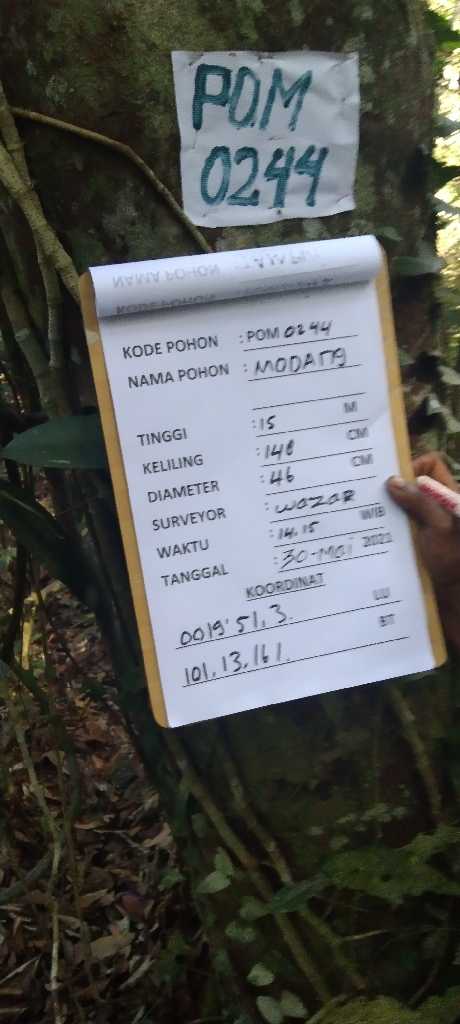 POM
0244
KODE POHON : POM 0244
NAMA POHON : MODANG
TINGGI : 15 M
KELILING : 140 CM
DIAMETER : 46 CM
SURVEYOR : WAZAR
WAKTU : 14.15 WIB
TANGGAL : 30-Mei 2021
KOORDINAT
0019'51,3. LU
101,13,161. BT